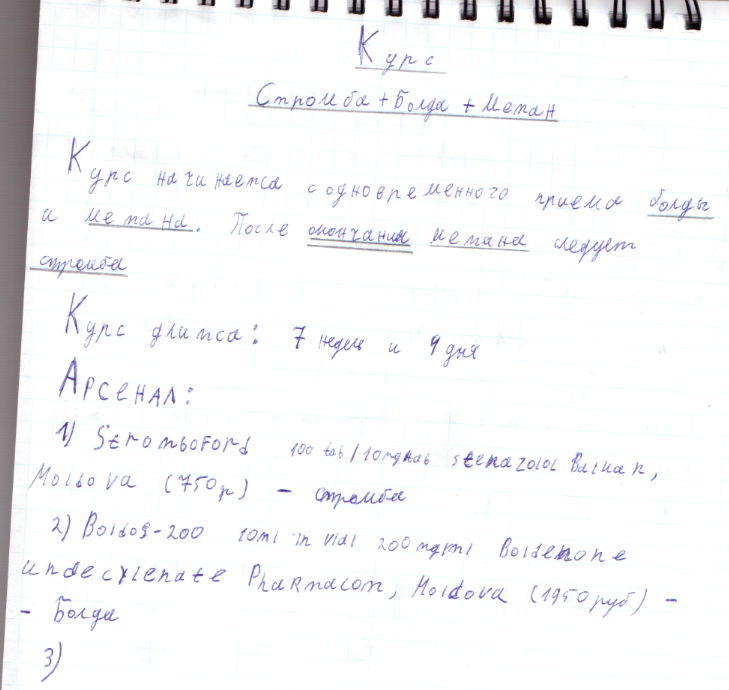 Курс
Стромба + Болда + Метан
Курс начинается с одновременного приема болды
и метана. После окончания метана следует
стромба
Курс длится: 7 недель и 4 дня
Арсенал:
1) Stromboford 100 tab/10mg tab stanazolol Balkan,
Moldova (750р) – стромба
2) Boldos-200 10ml in vial 200mg/ml Boldenone
undecylenate Pharmacom, Moldova (1950 руб) –
- Болда
3)